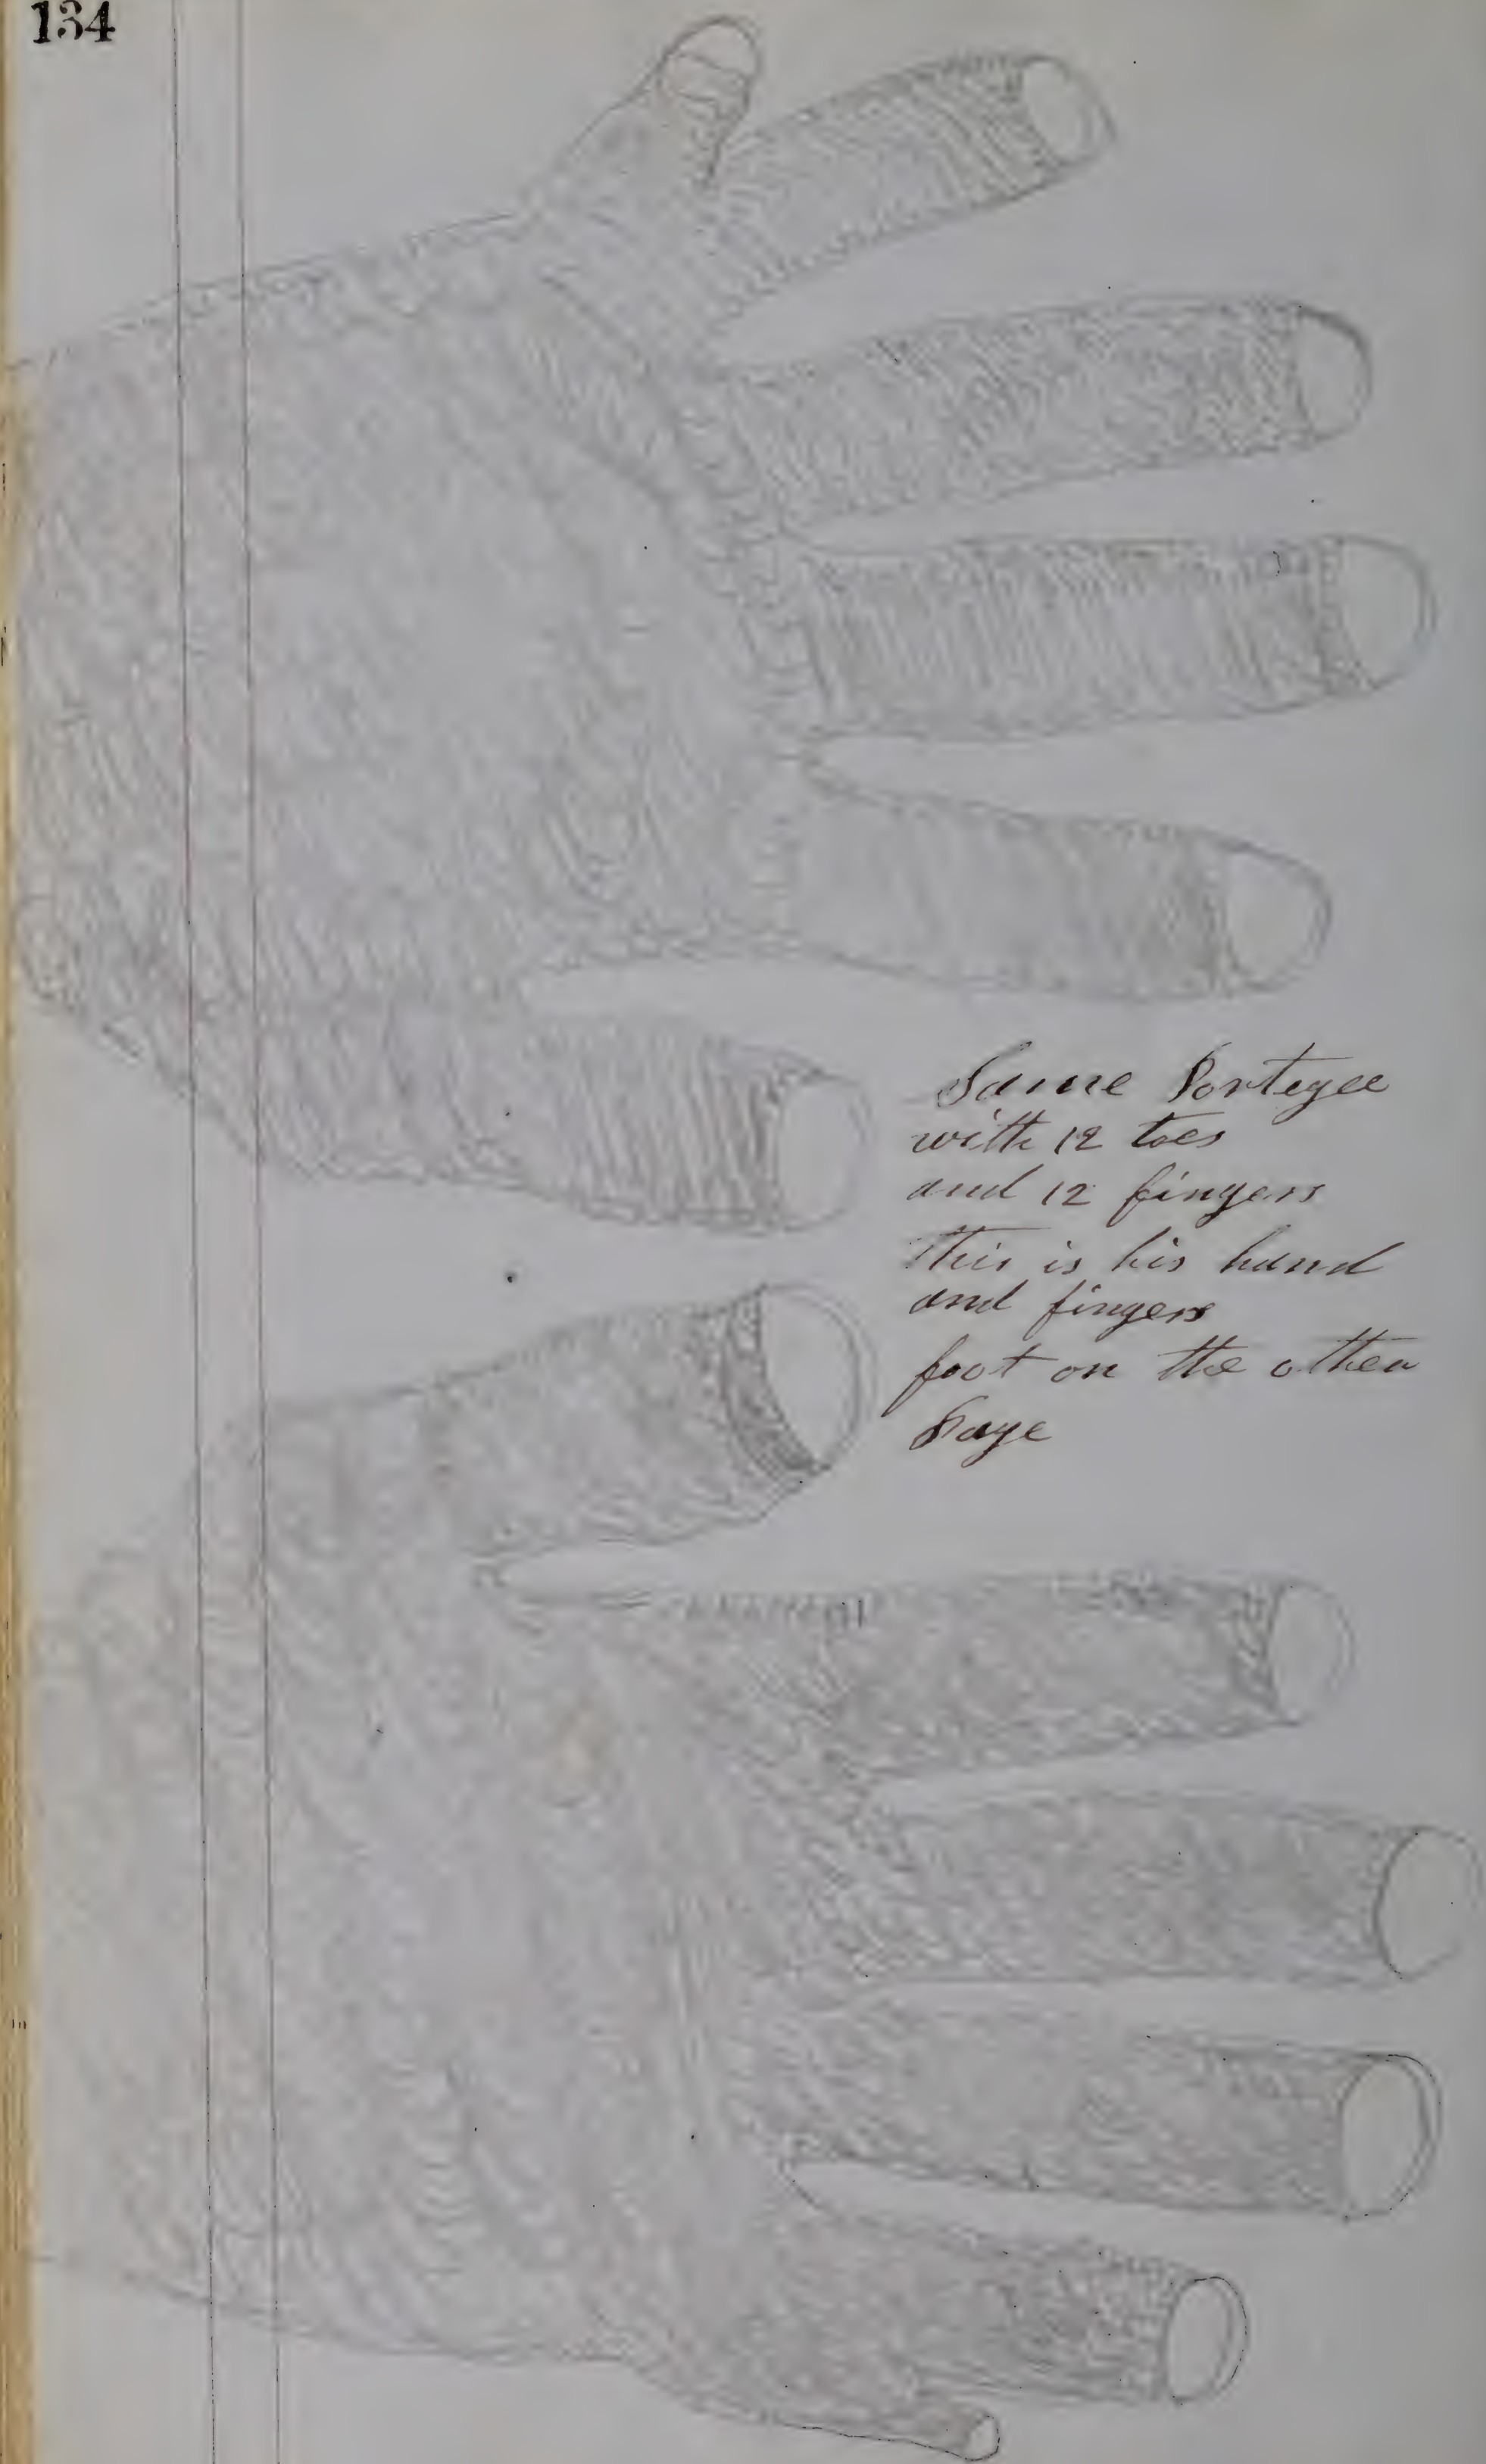 134
Same Portegee
with 12 toes
and 12 fingers
this is his hand
and fingers
foot on the other
Page